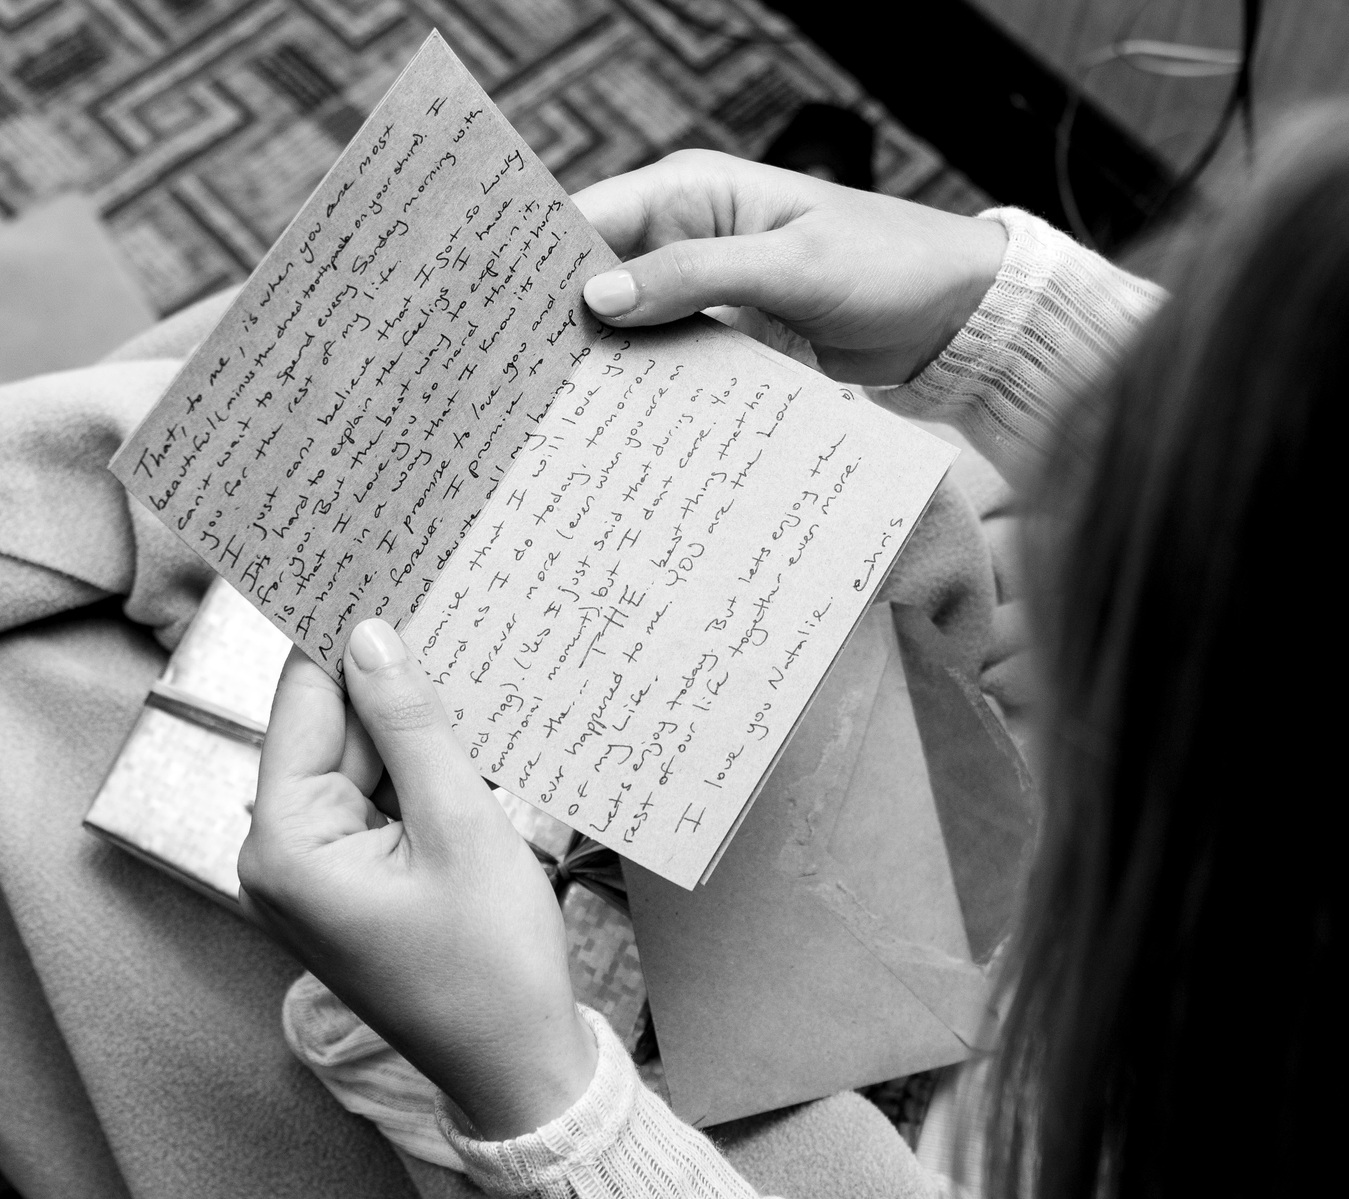 That, to me, is when you are most
beautiful (minus the dried toothpaste on your shirt). I
can't wait to spend every Sunday morning with
you for the rest of my life.
I just cant believe that I got so lucky
Its hard to explain the feelings I have
for you. But the best way to explain it,
is that I Love you so hard that it hurts
It hurts in a way that I know its real.
Natalie. I promise to love you and care
you forever. I promise to keep
and devote all my being to
promise that I will love you
hard as I do today, tomorrow
forever more (even when you are an
old hag). (Yes I just said that during an
emotional moment) but I dont care. You
are the... THE best thing that has
ever happened to me. YOU are the Love
of my Life.
Lets enjoy today. But lets enjoy the
rest of our life together even more.
I love you Natalie.
Chris